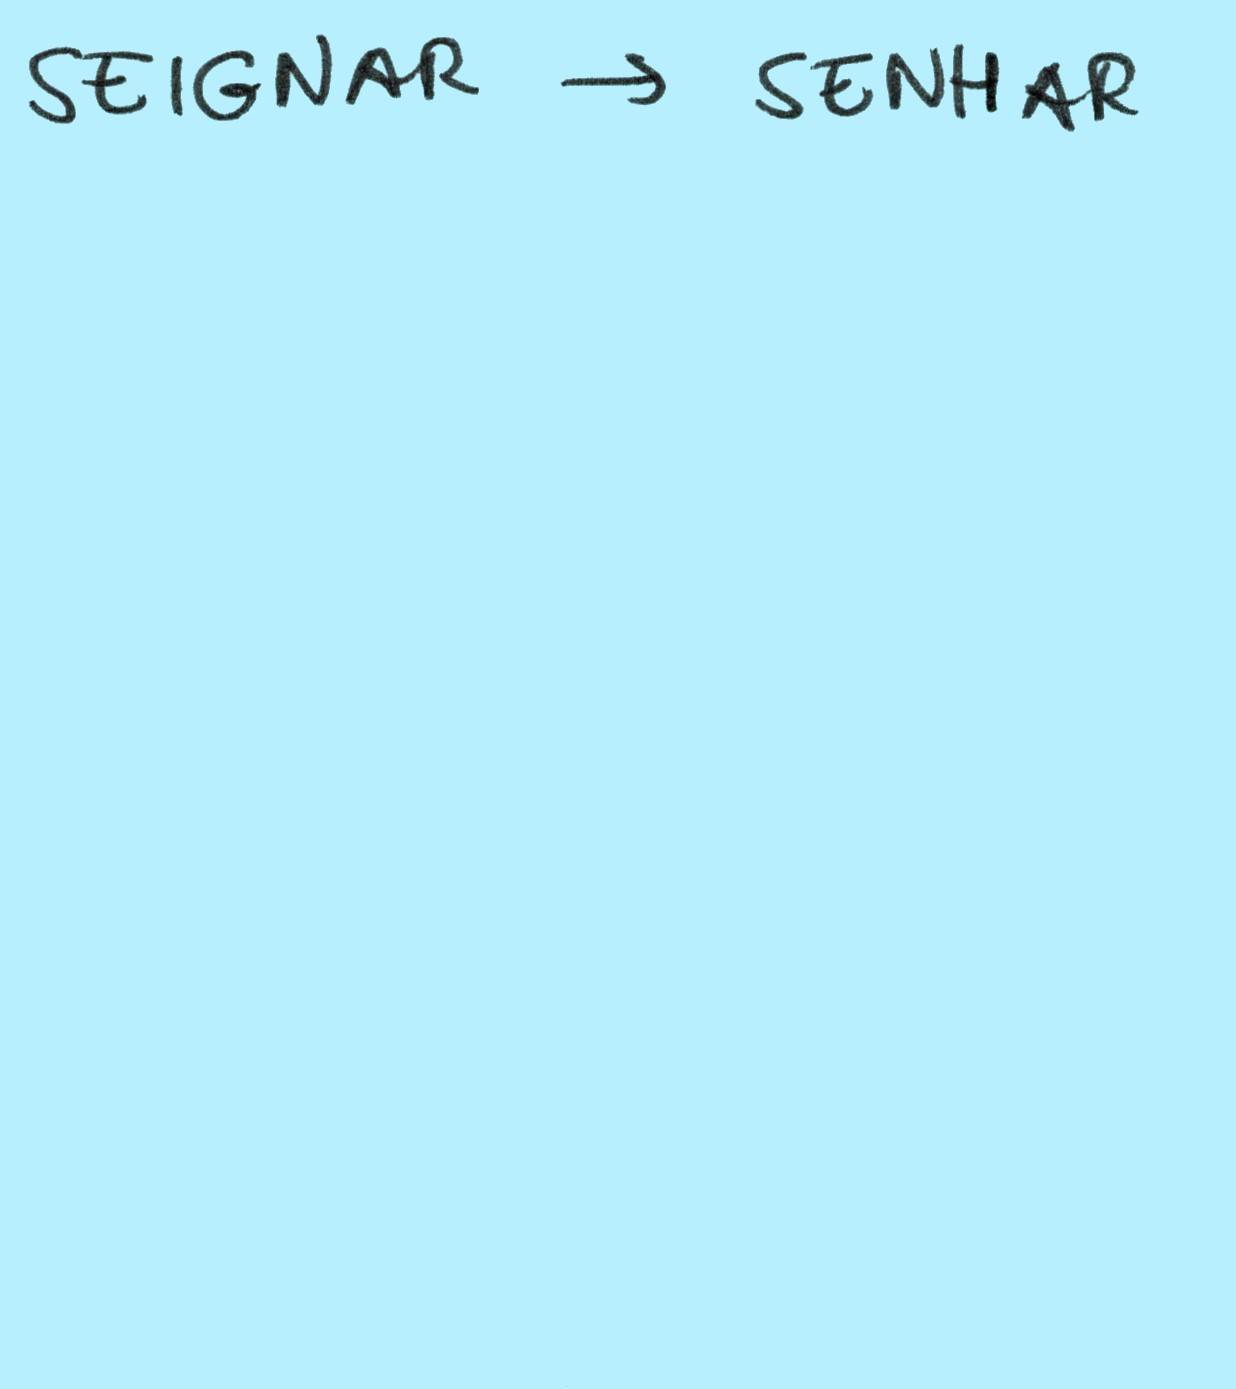 SEIGNAR → SENHAR